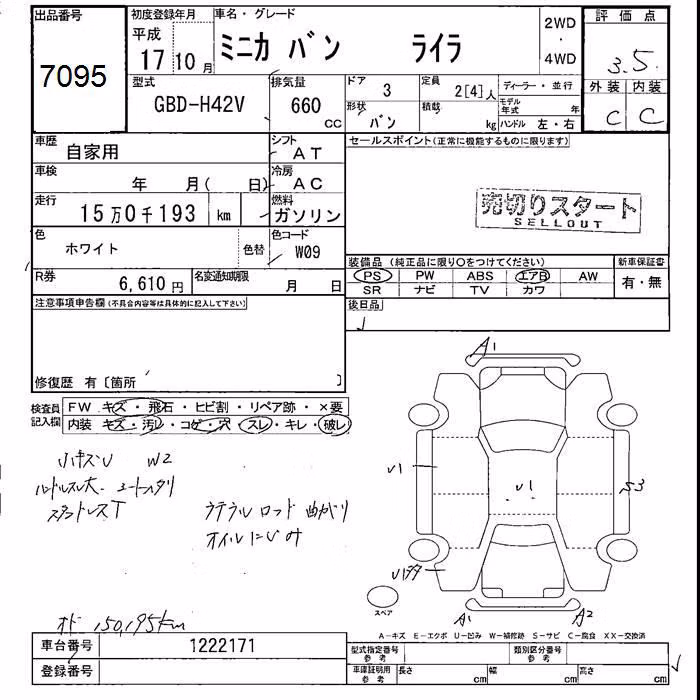 出品番号
7095
初度登録年月
平成
17 10 月
車名・グレード
ミニカ バン ライラ
2WD
・
4WD
評価点
3.5
外装 内装
C C
型式
GBD-H42V
排気量
660
cc
ドア
3
定員
2[4]人
形状
バン
積載
kg
ディーラー・並行
モデル 年
ハンドル 左・右
車歴
自家用
シフト
AT
セールスポイント(正常に機能するものに限ります)
車検
年 月( 日)
冷房
AC
走行
15万0千193 km
燃料
ガソリン
売切りスタート
SELLOUT
色
ホワイト
色替
色コード
W09
装備品 (純正品に限り○をつけてください)
新車保証書
PS PW ABS エアB AW
SR ナビ TV カワ
有・無
R券
6,610 円
名変通知期限
月 日
後日品
注意事項申告欄(不具合内容等は具体的に記入して下さい)
修復歴 有〔箇所 〕
検査員
記入欄
FW キズ・飛石・ヒビ割・リペア跡・×要
内装 キズ・汚レ・コゲ・穴・スレ・キレ・破レ
小キズU W2
スタッドレスT
ロッド 曲がり
オイルにじみ
A1
U1
U1
S3
A1
A2
スペア
オド 150,195km
A-キズ E-エクボ U-凹み W-補修跡 S-サビ C-腐食 XX-交換済
車台番号
1222171
登録番号
型式指定番号
参考
類別区分番号
参考
車庫証明用
参考
長さ cm
幅 cm
高さ cm